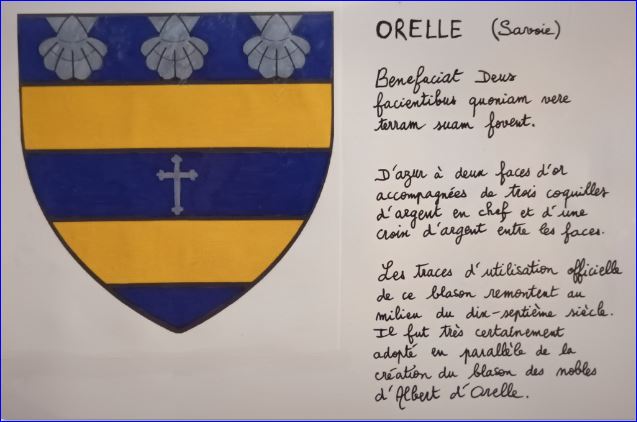 ORELLE (Savoie)
Benefaciat Deus
facientibus quoniam vere
terram suam fovent.
D'azur à deux faces d'or
accompagnées de trois coquilles
d'argent en chef et d'une
croix d'argent entre les faces.
Les traces d'utilisation officielle
de ce blason remontent au
milieu du dix-septième siècle.
Il fut très certainement
adopté en parallèle de la
création du blason des nobles
d'Albert d'Orelle.